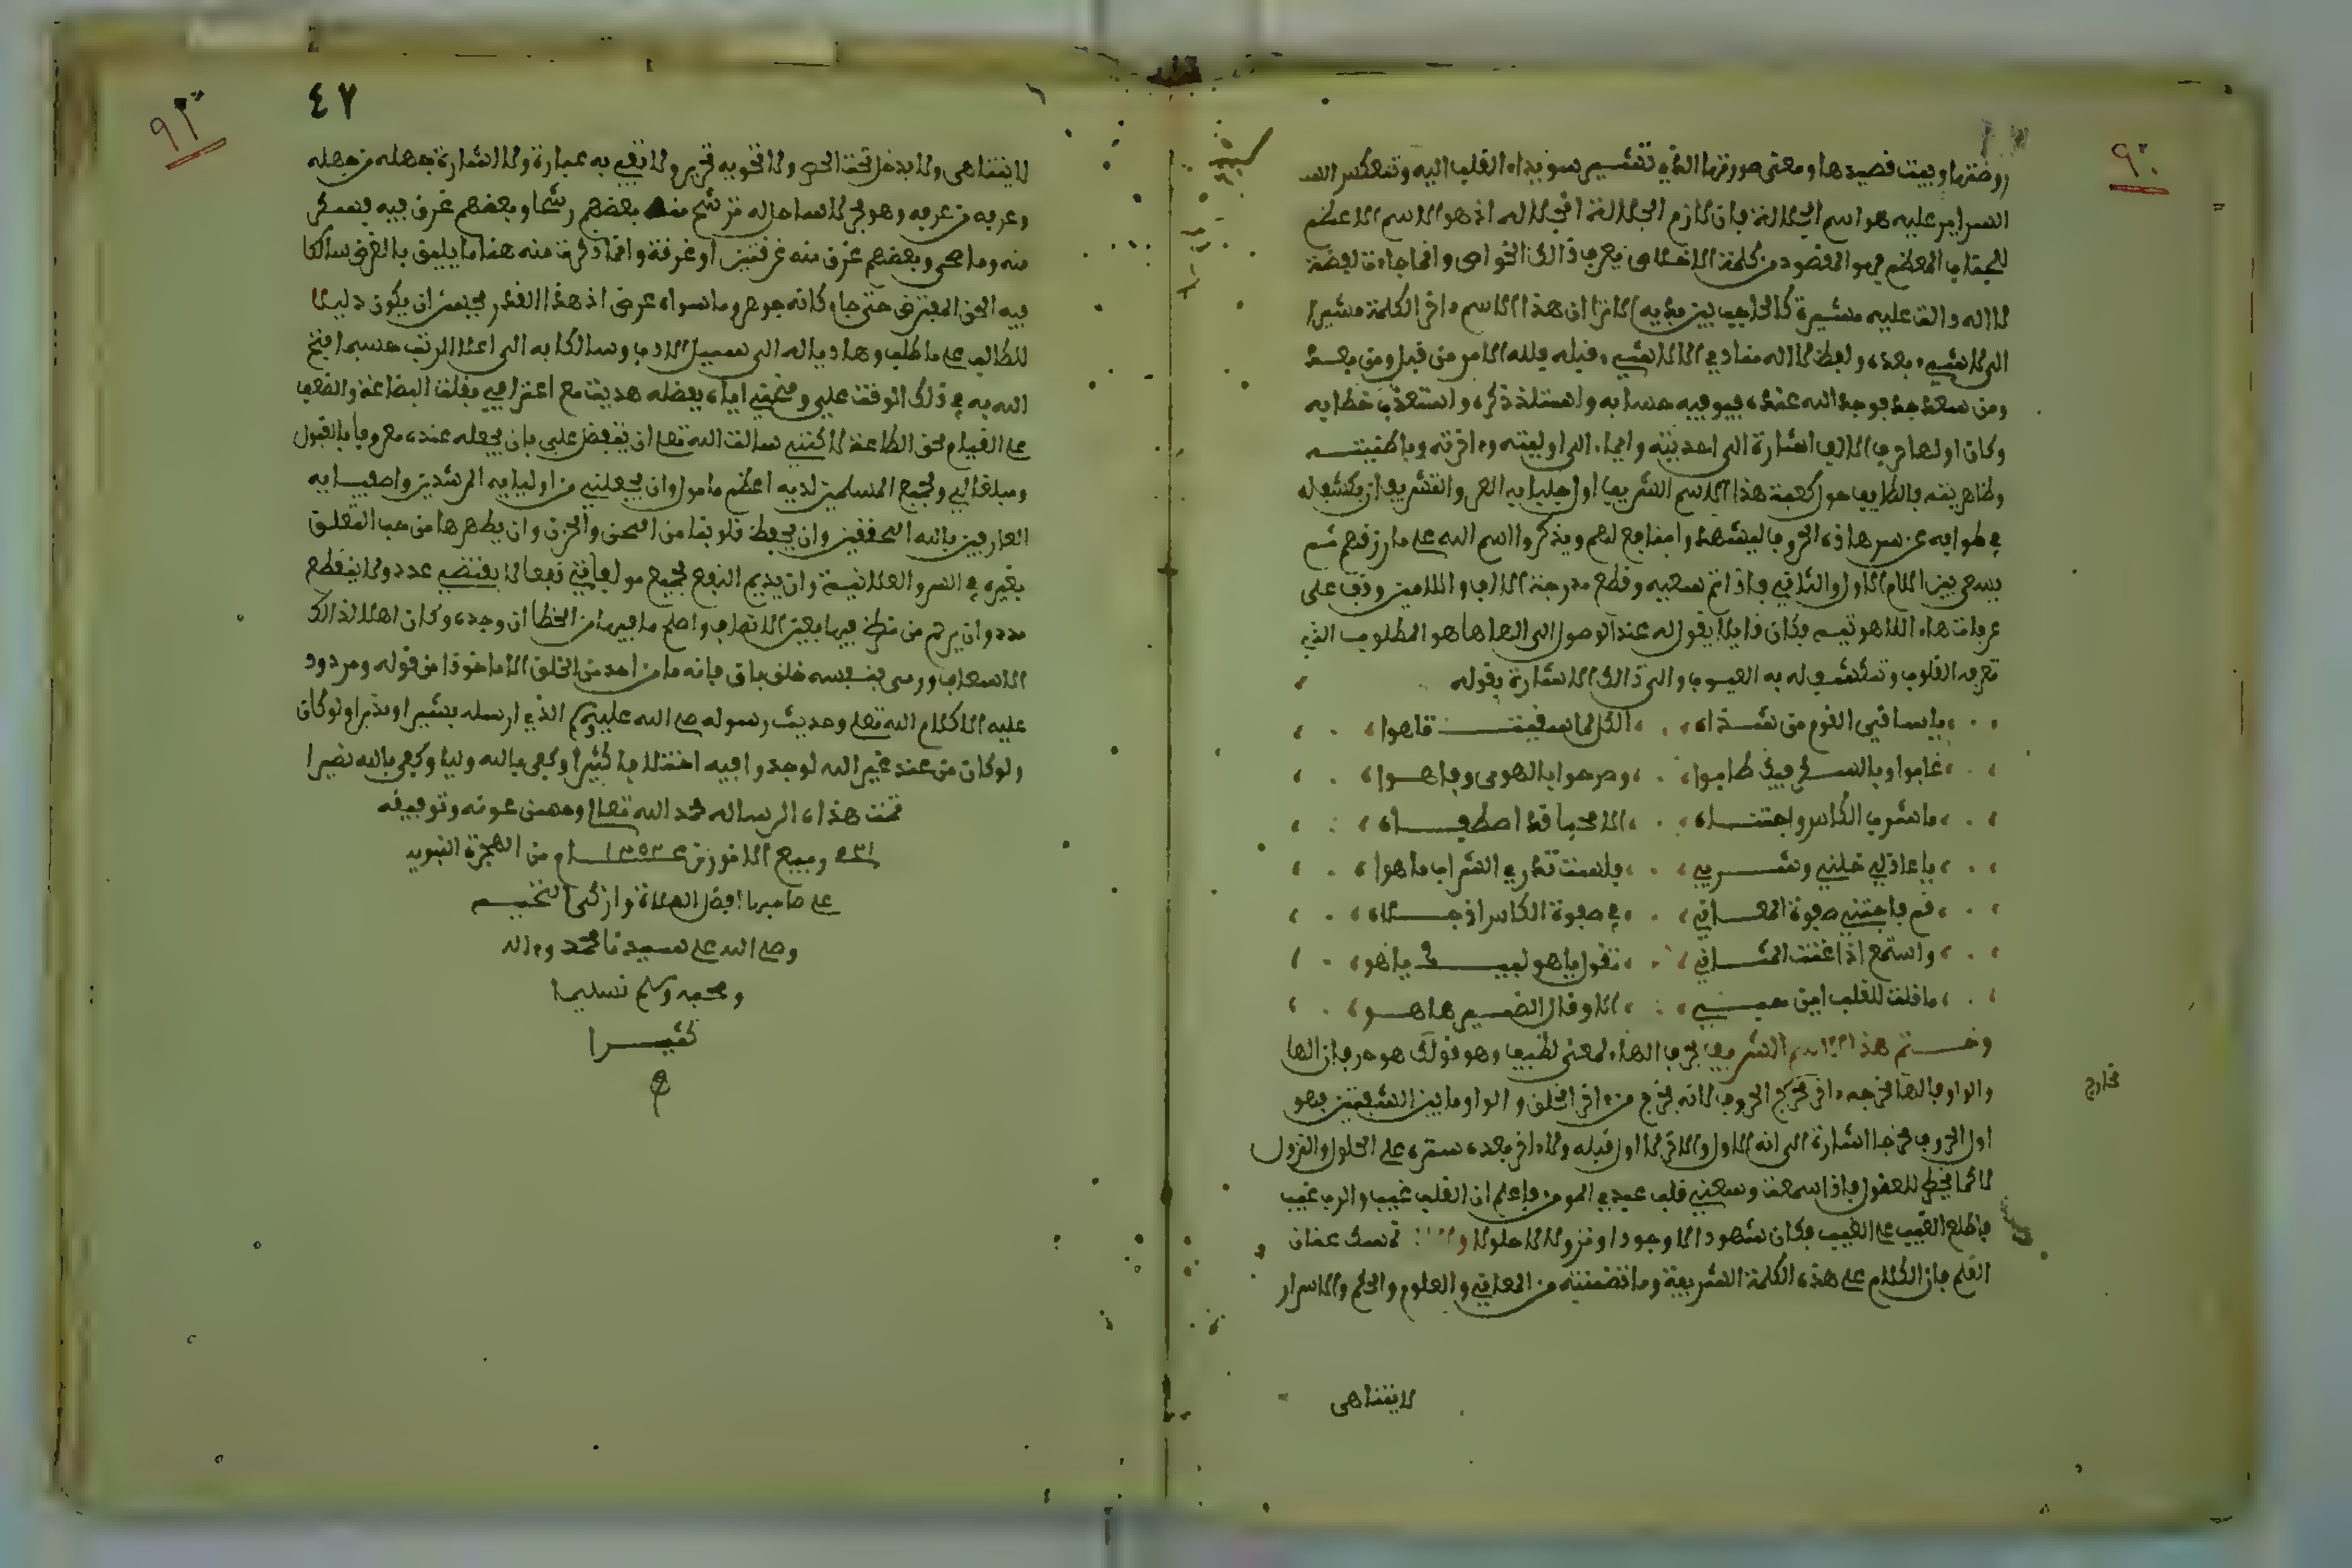 ٩٠
روضتها وبيت قصيدها ومعنى صورتها الذي تنتسم سويداء القلب اليه وتنعكس
السراير عليه هو اسم الجلالة فان لازم الجلالة الجلاله اذ هو الاسم الاعظم
للجناب المعظم فهو المقصود من كلمة الاخلاص يعرف ذالك الخواص وانما جاءت لفظة
لا اله والف عليه مشيرة كالحاجب بين يديه الا ترا ان هذا الاسم ءاخر الكلمة مشيرا
الى لا شيء بعده ولفظ لا اله مناد في الا لا شيء قبله فلله الامر من قبل ومن بعد
ومن سعد جد بوجد الله عنده فيوفيه حسابه واستلذ ذكره واستعذب خطابه
وكان اولها حرف الالف اشارة الى احديته وايما الى اوليته وءاخرته وباطنيته
وظاهريته فالطايف حول كعبة هذا الاسم الشريف اول جلبابه العز والتشريف ان يكشف له
في طوافه عن سر هاذه الحروف ليشهدوا منافع لهم ويذكروا اسم الله على ما رزقهم ثم
يسعى بين اللام الاول والثاني فاذا تم سعيه وقطع مدرجة الالف واللامين وقف على
عرفات هاء اللاهوتيه فكان قايلا يقول له عند الوصول الى الها ها هو المطلوب الذي
تعرفه القلوب وتنكشف له به الغيوب والى ذالك الاشارة بقوله
يا ساقي القوم من شذاه الكل لما سقيت تاهوا
غابوا وبالسكر فيك طابوا وصرحوا بالهوى وفاهوا
ما شرب الكاس واجتناه الا محبا قد اصطفاه
يا عاذلي خلني وشربي فلست تدري الشراب ما هوا
قم فاجتني صفوة المعاني في صفوة الكاس اذ جلاه
واستمع اذا غنت المثاني تقول يا هو لبيك يا هو
ما قلت للقلب اين حبي الا وقال الضمير ها هو
وختم هذا الاسم الشريف بحرف الهاء لمعنى لطيف وهو قولك هو حرفان الها
والواو فالها مخرجه ءاخر مخرج الحروف لانه يخرج من ءاخر الحلق والواو ما بين الشفتين فهو
مخارج
اول الحروف مخرجا اشارة الى انه الاول والاخر لا اول قبله ولا ءاخر بعده ستره على الحلول والنزول
لانما يخطر للعقول فاذا سمعت وسعني قلب عبدي المومن فاعلم ان القلب غيب والرب غيب
فاطلع الغيب على الغيب فكان شهودا لا وجودا ونزولا لا حلولا نمسك عنان
القلم فان الكلام على هذه الكلمة الشريفة وما تضمنته من المعاني والعلوم والحكم والاسرار
لا يتناهى
٩٢
٤٧
لا يتناهى ولا يدخل تحت الحصر ولا تحويه تحرير ولا تفي به عبارة ولا اشارة جهله من جهله
وعرفه من عرفه وهو بحر لا ساحل له ترشح منه بعضهم رشحا وبعضهم غرق فيه فسكر
منه وما صحى وبعضهم غرف منه غرفتين او غرفة وانما ذكرت منه هنا ما يليق بالغرض سالكا
فيه الحق المفترض حتى جاء كانه جوهر وما سواه عرض اذ هذا القدر يحسن ان يكون دليلا
للطالب على ما طلب وهاديا له الى سبيل الادب وسالكا به الى اعلا الرتب حسبما فتح
الله به في ذلك الوقت علي ومنحني اياه بفضله هدية مع اعترافي بقلت البضاعة والضعف
على القيام بحق الطاعة لاكنني سالت الله تعلى ان يتفضل علي بان يجعله عنده معروفا بالقبول
ومبلغا لي ولجميع المسلمين لديه اعظم مامول وان يجعلني من اوليايه المرشدين واصفيايه
العارفين بالله المحققين وان يحفظ قلوبنا من المحن والحزن وان يطهرها من حب التعلق
بغيره في السر والعلانية وان يديم النفع لجميع مولفاتي نفعا لا يقتضي عدد ولا ينقطع
مدد وان يرحم من نظر فيها بعين الانصاف واصلح ما فيها من الخطا ان وجده وكان اهلا لذالك
الاسعاف ورمى بنفسه خلف باق فانه ما من احد من الخلق الا ماخوذا من قوله ومردود
عليه الا كلام الله تعلى وحديث رسوله صلى الله عليه وسلم الذي ارسله بشيرا ونذيرا ولو كان
ولو كان من عند غير الله لوجدوا فيه اختلافا كثيرا وكفى بالله وليا وكفى بالله نصيرا
تمت هذاه الرساله بحمد الله تعالى وحسن عونه وتوفيقه
ربيع الاخر عام من الهجرة النبويه
على صاحبها افضل الصلاة وازكى التحيه
وصلى الله على سيدنا محمد وءاله
وصحبه وسلم تسليما
كثيرا